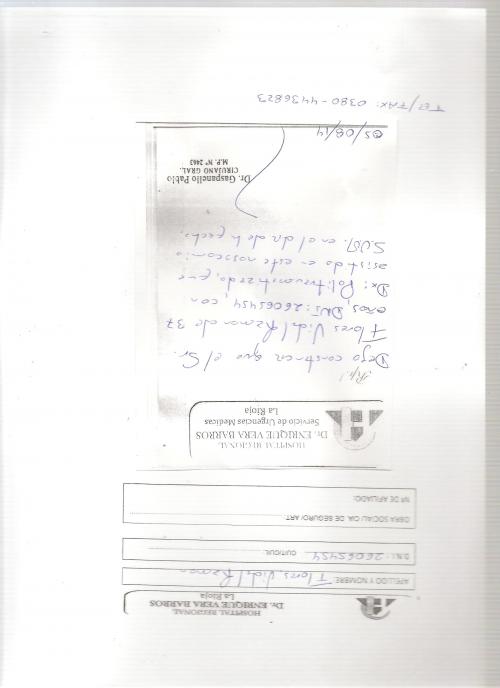 HOSPITAL REGIONAL
Dr. ENRIQUE VERA BARROS
La Rioja
APELLIDO Y NOMBRE: Flores Vidal Ramon
D.N.I.: 26065454 CUIT/CUIL:
OBRA SOCIAL/ CIA. DE SEGURO/ ART:
Nº DE AFILIADO:
HOSPITAL REGIONAL
Dr. ENRIQUE VERA BARROS
Servicio de Urgencias Medicas
La Rioja
Rp/
Dejo constancia que el Sr.
Flores Vidal Ramon de 37
años, DNI: 26065454, con
Dx: Politraumatizado, fue
asistido en este nosocomio
en el dia de la fecha.
Dr. Gaspanello Pablo
CIRUJANO GRAL.
M.P. Nº 2463
05/08/14
Tel/FAX: 0380-4436823